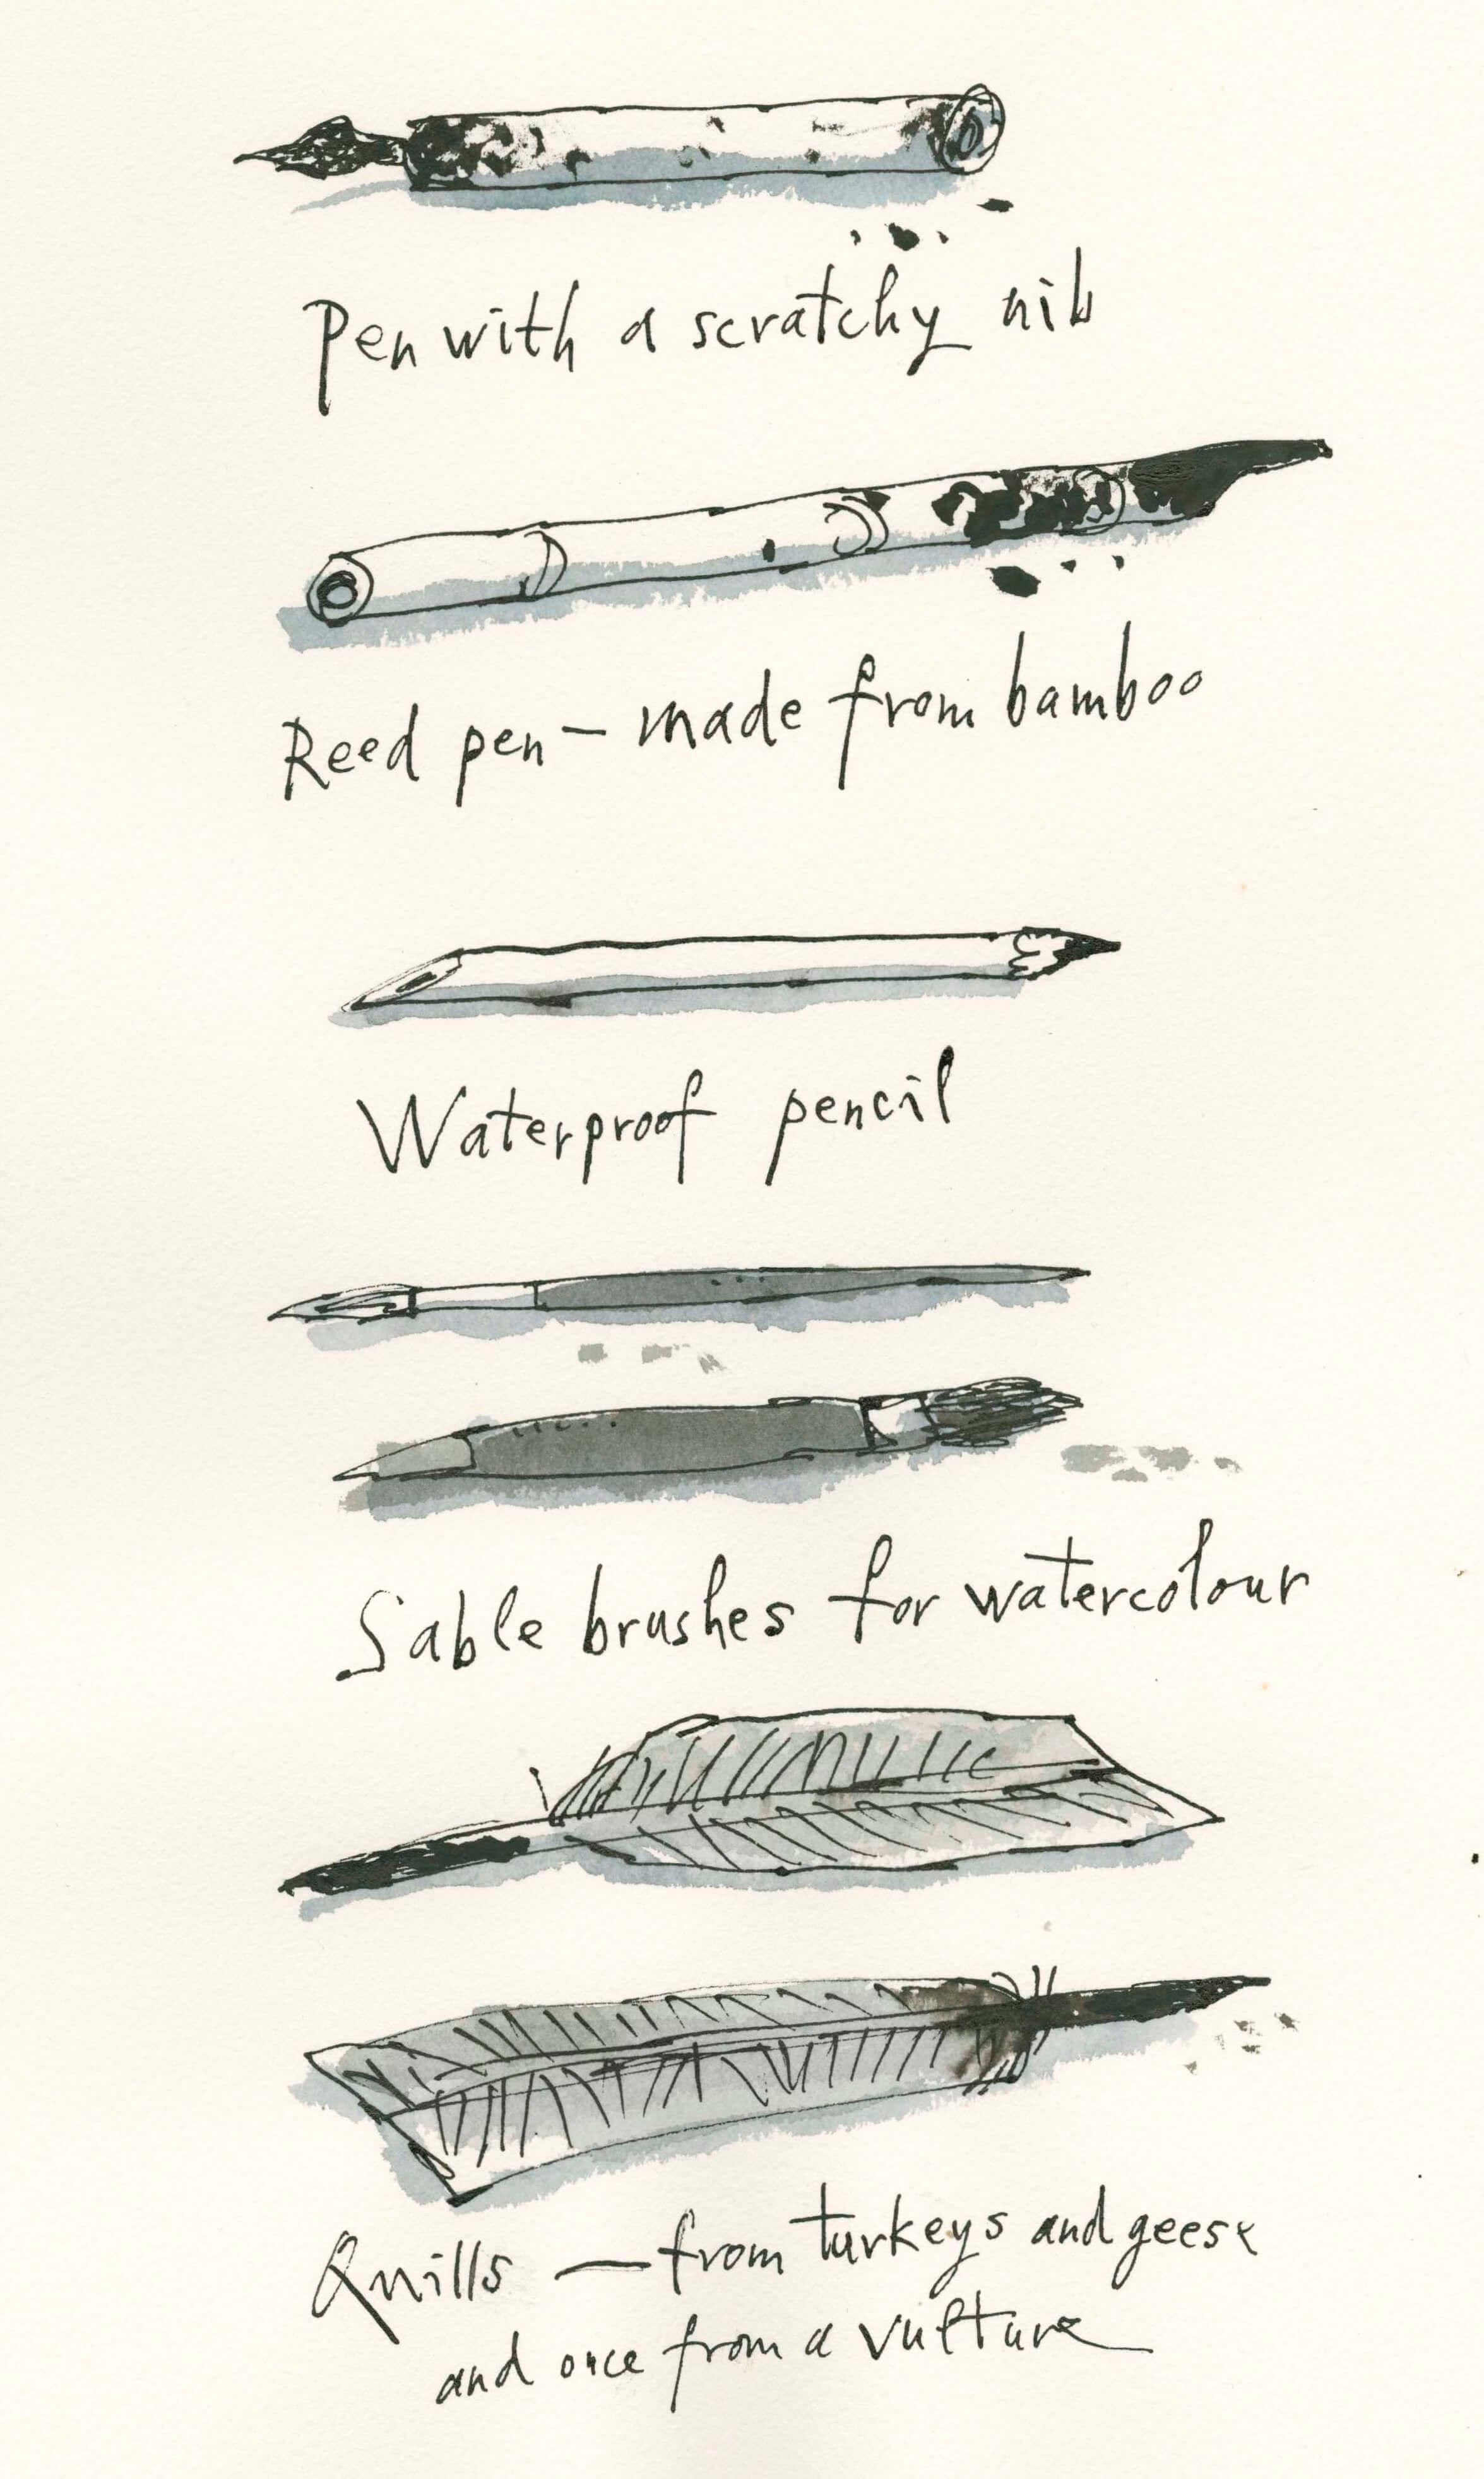 Pen with a scratchy nib
Reed pen – made from bamboo
Waterproof pencil
Sable brushes for watercolour
Quills – from turkeys and geese
and once from a vulture